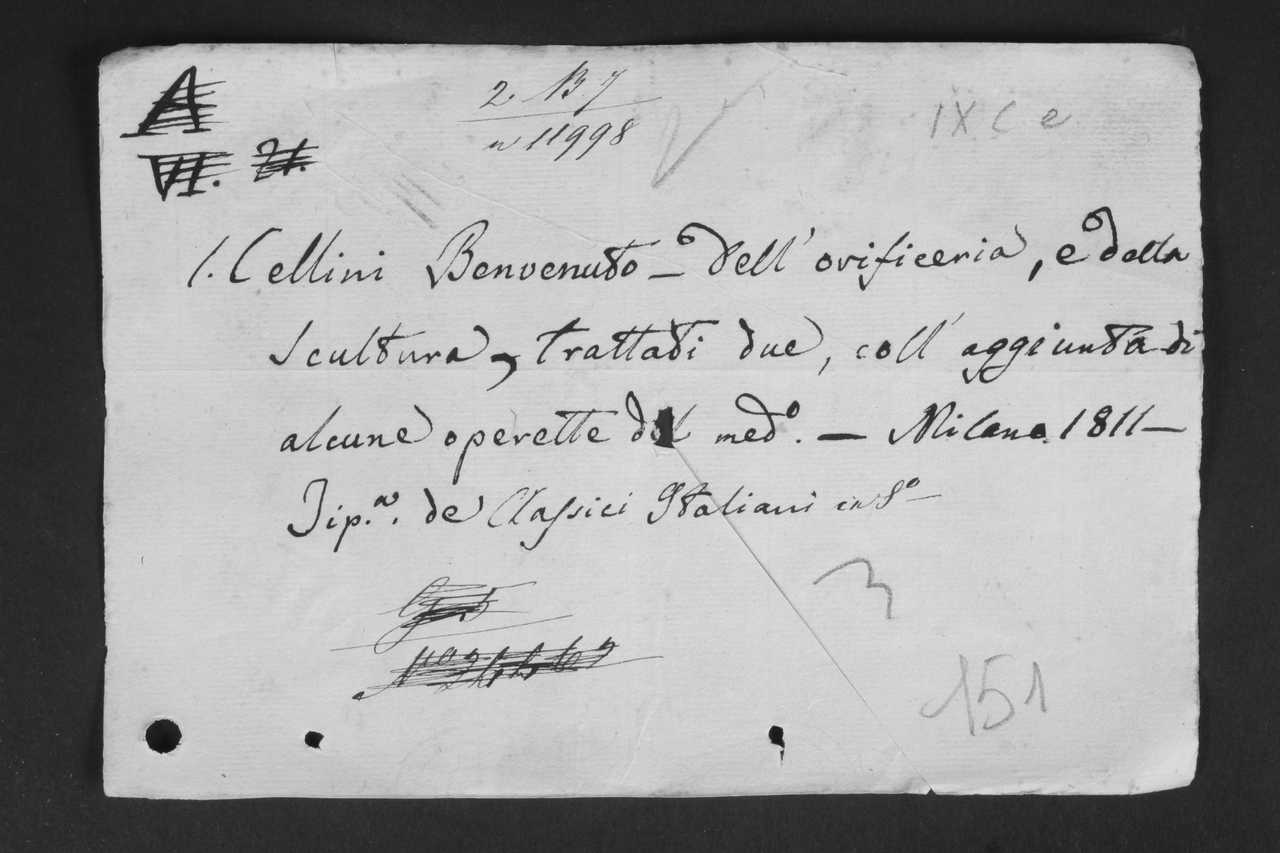 A
VI. 21.
2 B 7
n 11998
IX C e
1. Cellini Benvenuto - Dell' orificeria, e della
Scultura, trattati due, coll' aggiunta di
alcune operette del medº. - Milano 1811 -
Tip.ª de Classici Italiani in 8º -
3
151